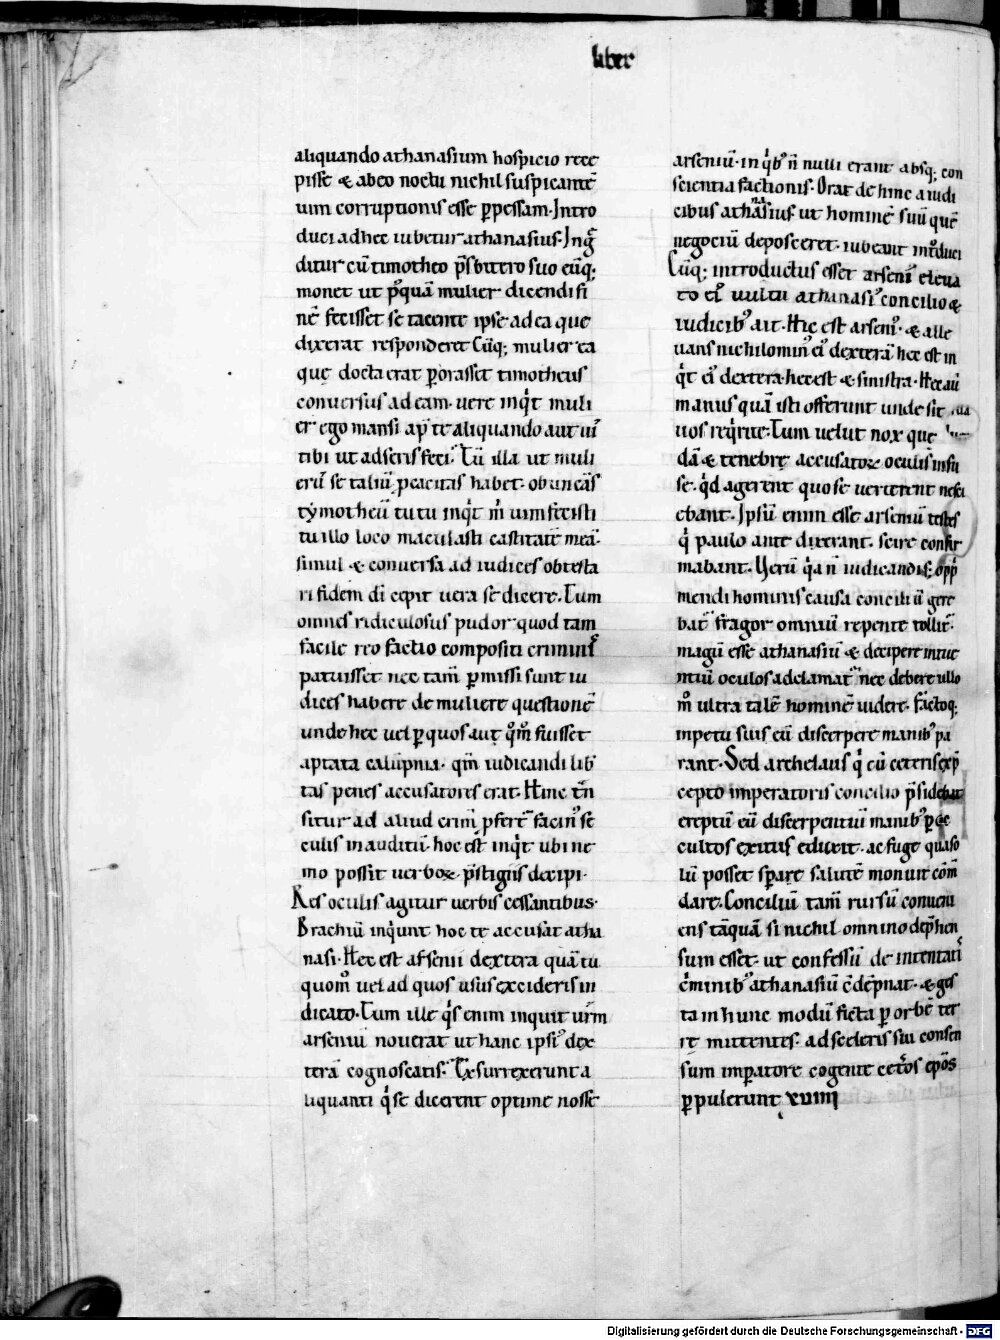 liber
aliquando athanasium hospicio rece
pisse & ab eo noctu nichil suspicantē
uim corruptionis esse ꝑpessam. Intro
duci ad hec iubetur athanasius. Ingͣ
ditur cū timotheo p̄sbitero suo eūq;
monet ut pͥquā mulier dicendi fi
nē fecisset se tacente ipse ad ea que
dixerat responderet Cūq; mulier ea
quę docta erat ꝑorasset timotheus
conuersus ad eam. uere inqͥt muli
er ego mansi ap̄ te aliquando aut uī
tibi ut adseris feci. Tū illa ut muli
erū se taliū ꝓcacitas habet. obuncās
tẏmotheū tu tu inqͥt m̄ uim fecisti
tu illo loco maculasti castitatē meā.
simul & conuersa ad iudices obtesta
ri fidem di cępit uera se dicere. Tum
omnes ridiculosus pudor quod tam
facile reo factio compositi criminiſ
patuisset nec tam̄ ꝑmissi sunt iu
dices habere de muliere questionē
unde hec uel ꝑ quos aut qͦm̊ fuisset
aptata calūpnia. qm̄ iudicandi lib̄
tas penes accusatores erat. Hinc tn̄
situr ad aliud crim̄ ꝓfert̄ facin᷒ se
culis inauditū. hoc est inqͥt ubi ne
mo possit uerboꝝ p̄stigiis decipi.
Res oculis agitur uerbis cessantibus.
Brachiū inqͥunt hoc te accusat atha
nasi. Hec est arsenii dextera quā tu
quom̊ uel ad quos usus excideris in
dicato. Tum ille qͥs enim inquit ur̄m
arseniū nouerat ut hanc ipsi᷒ dex
terā cognoscatis. Exsurrexerunt a
liquanti qͥ se dicerent optime nosse
arseniū. in qͥb᷒ n̄ nulli erant absq; con
scientia factionis. Orat de hinc a iudi
cibus athanasius. ut hominē suū quē
negociū deposceret. iubeant intͦduci
Cūq; introductus esset arseni᷒ eleua
to ei᷒ uultu athanasi᷒ concilio &
iudicib᷒ ait. Hic est arseni᷒. & alle
uans nichilomin᷒ ei᷒ dexterā hec est in
qͥt ei᷒ dextera. hec est & sinistra. Hec aū
manus quā isti offerunt unde sit
uos reqͥrite. Tum uelut nox que
dā & tenebrę accusatoꝝ oculis infu
se. qͥd agerent quo se uerterent nesci
ebant. Ipsū enim esse arseniū testes
qͥ paulo ante dixerant. scire confir
mabant. Uerū qͥa n̄ iudicandi s; opp̄
mendi hominis causa conciliū gere
bat᷒ fragor omniū repente tollit᷒.
magū esse athanasiū & decipere intue
ntiū oculos adclamat᷒ nec debere ullo
m̊ ultra talē hominē uidere. factoq;
inpetu suis eū discerpere manib᷒ pa
rant. Sed archelaus qͥ cū ceteris exp̄
cepto imperatoris concilio p̄sidebat
ereptū eū discerpentiū manib᷒ ꝑ oc
cultos exitus eduxit. ac fuge quaso
lū posset sperare salutē monuit cōm̄
dare. Conciliū tam̄ rursū conueni
ens tāquā si nichil omnino dep̄hen
sum esset. ut confessū de intentati
cͥminib᷒ athanasiū cōdēpnat. & ges
ta in hunc modū ficta ꝑ orbē ter
rę mittentes. ad sceleris sui consen
sum imꝑatore cogente cetͦos ep̄os
ꝑpulerunt xviiii
Digitalisierung gefördert durch die Deutsche Forschungsgemeinschaft - DFG